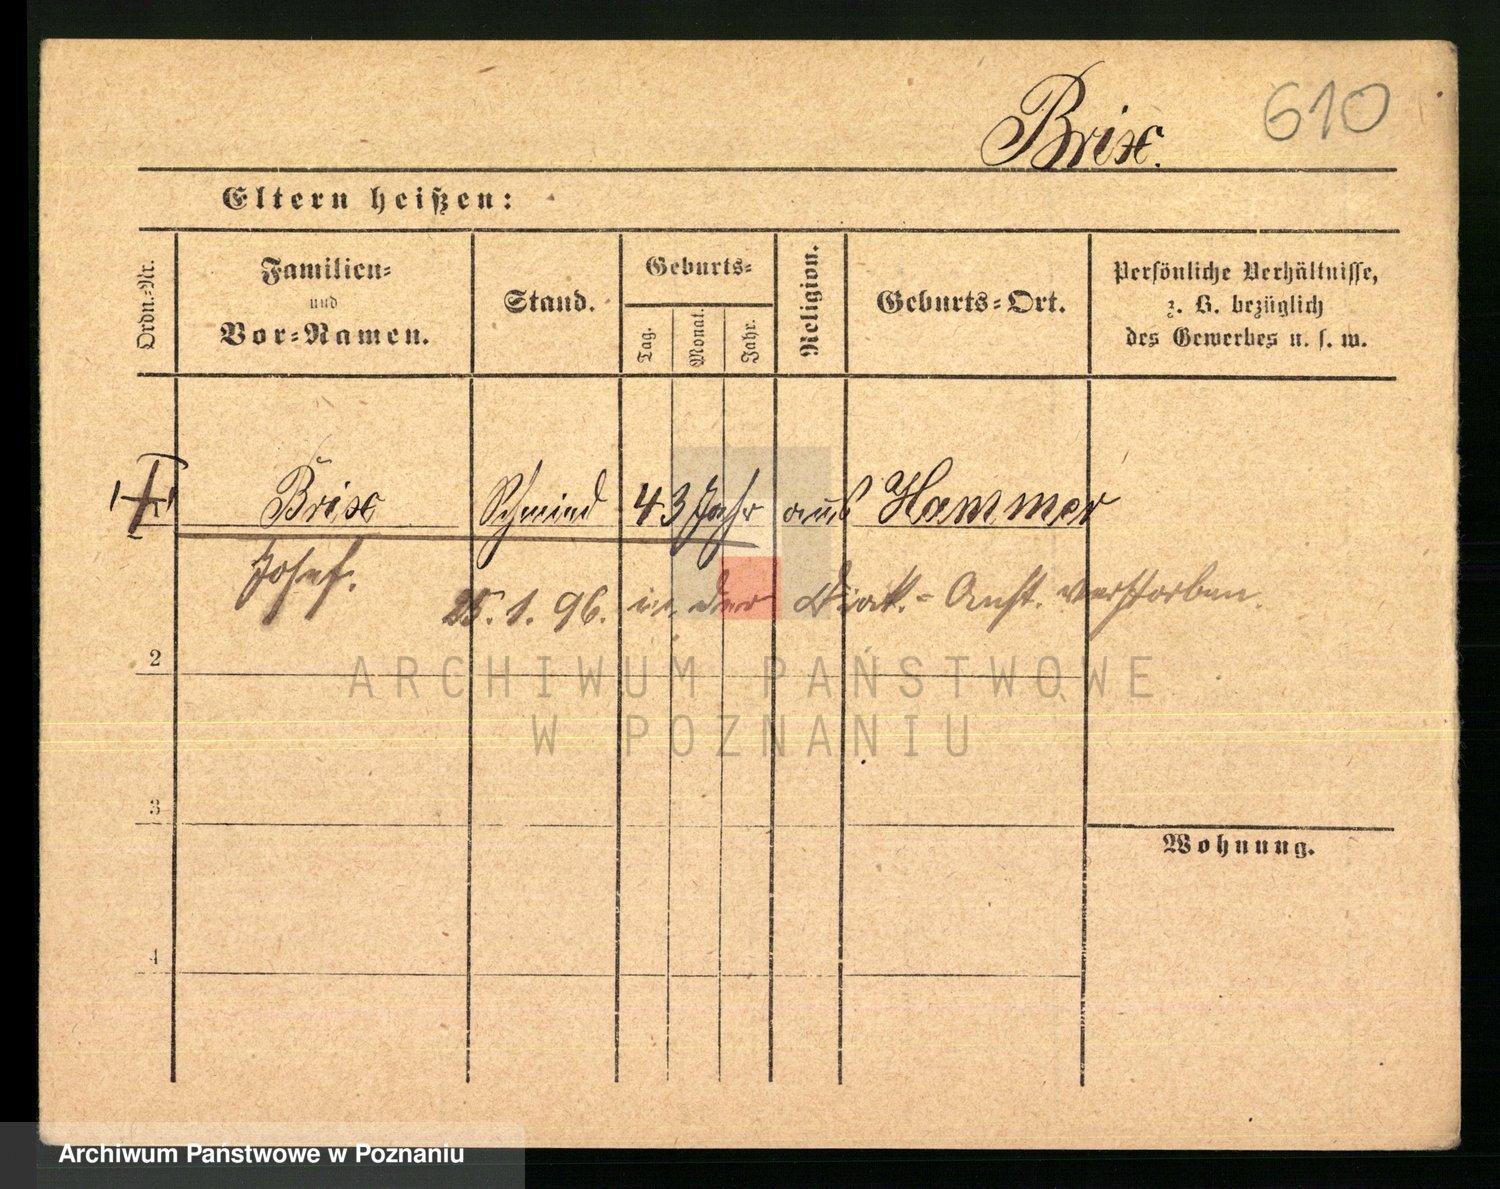 Brix.
610
Eltern heißen:
Ordn.-Nr.
Familien-
und
Vor-Namen.
Stand.
Geburts-
Tag.
Monat.
Jahr.
Religion.
Geburts-Ort.
Persönliche Verhältnisse,
z. B. bezüglich
des Gewerbes u. s. w.
Brix Schmied 43 Jahr aus Hammer
Josef.
25. 1. 96. in der Diak.-Anst. verstorben.
2
ARCHIWUM PAŃSTWOWE
W POZNANIU
3
Wohnung.
4
Archiwum Państwowe w Poznaniu